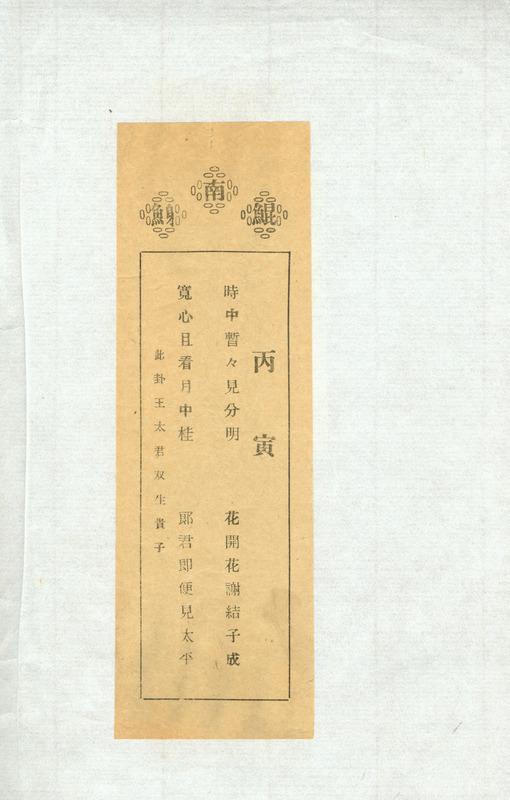 南鯤鯓
丙寅
時中暫々見分明 花開花謝結子成
寬心且看月中桂 郎君即便見太平
此卦王太君双生貴子